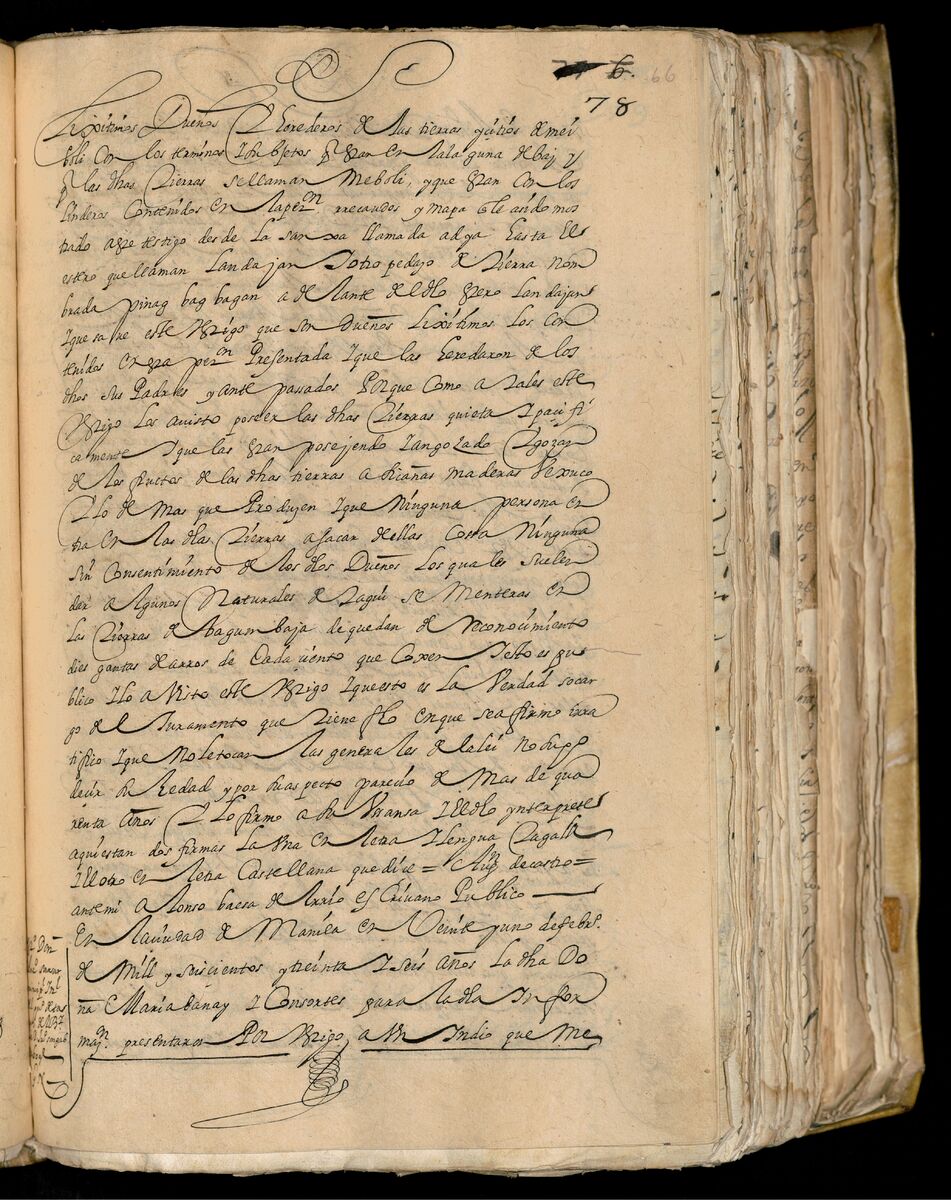 6. 66
78
Lixitimos Dueños y herederos de las tierras y sitios de mei
boli con los terminos y subjetos q̃ estan en la laguna de bay y
q̃ las dhas tierras se llaman Meboli, y que estan con los
linderos contenidos en la petⁿ. rrecaudos y mapa q̃ le a sido mos
trado a este testigo desde la llamada adya hasta el
estero que llaman Landajan y otro pedaço de tierra nom
brada pinag bag bagan a delante del dho estero landajan
y que save este testigo que son Dueños Lixitimos los con
tenidos en esta petⁿ Presentada y que las heredaron de los
dhos sus Padres y ante pasados Porque como a tales este
testigo los a visto poseer las dhas tierras quieta y pacifi
camente y que las estan poseyendo y an gozado y gozan
de los fructos de las dhas tierras a de cañas maderas Vexuco
y lo de mas que Produjen y que Ninguna persona en
tra en las dhas tierras a sacar dellas cosa Ninguna
sin Consentimiento de los dhos Dueños los quales suelen
dar a algunos Naturales de Taguii se menteras en
las tierras de bagumbaja de quedan de Reconocimiento
dies gantas de arros de Cada ciento que coxen y esto es pu
blico y lo a Visto este testigo y que esto es la Verdad so car
go del Juramento que tiene fho en que se afirmo y rra
tifico y que No le tocan las generales de la lei no supo
decir su hedad y por su aspecto parecio de Mas de qua
renta años y lo firmo a su Usansa y el dho ynterprete
aqui estan dos firmas la Una en letra y lengua Tagala
y la otra en letra Castellana que dice = de castro =
ante mi Alonso baesa de el Rio esCrivano Publico
En la ciudad de Manila en Veinte y uno de febrº.
de Mill y seiscientos y treinta y seis años la dha Do
ña Maria banay y Consortes para la dha Infor
maçⁿ. presentaron Por testigo a Un Indio que Me
Don